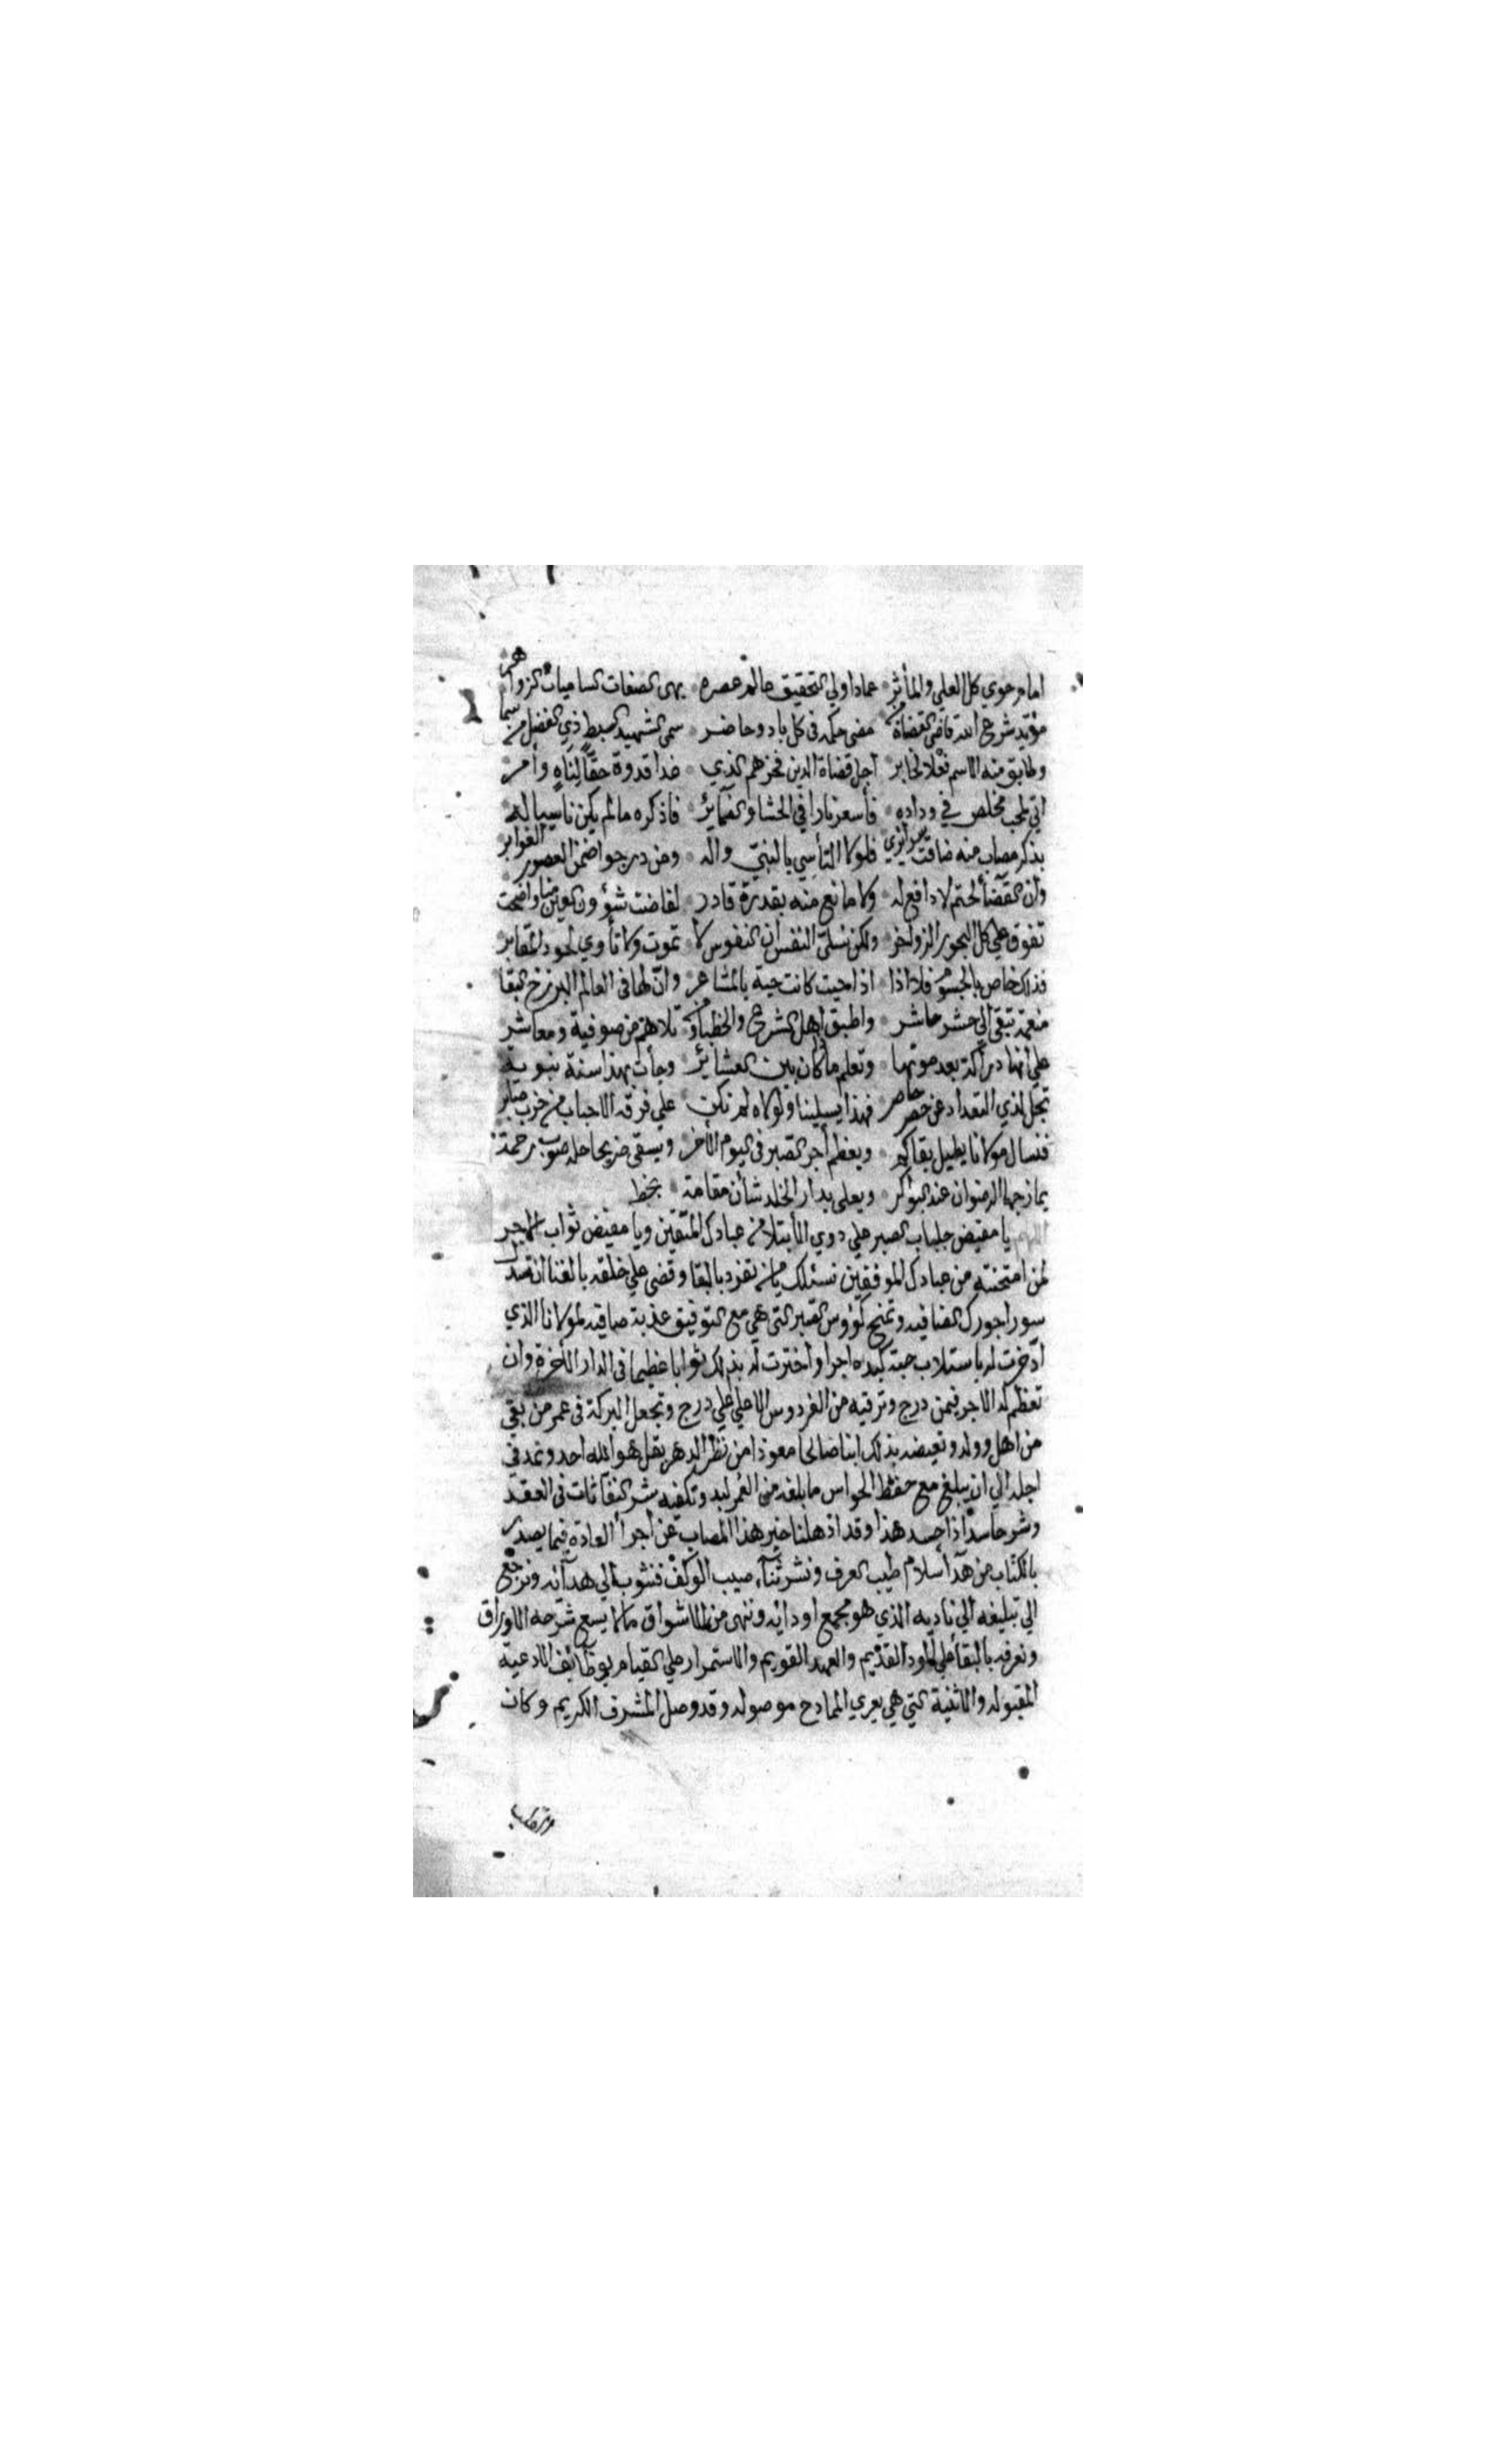 امام حوي كل العلي والمأثر • عماد اولي التحقيق عالم عصره • بهى الصفات الساميات الزواهر
مؤيد شرع الله قاضي القضاة من • مضى حكمه في كل باد وحاضر • سمى الشهيد السبط ذي الفضل من سما
وطابق منه الاسم فعلا لخابر • اجل قضاة الدين فخرهم الذي • غدا قدوة حقًّا لِنَاهٍ وأمر
اتي لمحب مخلص في وداده • فأسعر نارا في الحشا والضمائر • فاذكره مالم يكن ناسيا له
بذكر مصاب منه ضاقت مرائري • فلولا التأسي بالنبي واله • ومن درجوا ضمن العصور الغوابر
وأن القضا حتم لا دافع له • ولا مانع منه بقدرة قادر • لفاضت شؤون العين منا واضحت
تفوق علي كل البحور الزواخر • ولكن نسلي النفس أن النفوس لا • تموت ولا تأوي لحود المقابر
فذلك خاص بالجسوم فلا اذا • اذا محيت كانت حية بالمشاعر • وانّ لها في العالم البرزخ البقا
منعمة تبقي الي حشر حاشر • واطبق اهل الشرع والحظ من • تلاهم من صوفية ومعاشر
علي أنها دراكة بعد موتها • وتعلم ما كان بين العشائر • وجأت بهذا سنة نبوية
تجل لذي التعداد عن حصر حاصر • فهذا يسلينا ولولاه لم نكن • علي فرقة الاحباب من خرب صابر
فنسأل مولانا يطيل بقاكم • ويعظم أجر الصبر في اليوم الأخر • ويسقي ضريحا حله صوب رحمة
يمازجها الرضوان عند البواكر • ويعلي بدار الخلد شأن مقامه • بخط
اللهم يا مفيض جلباب الصبر علي ذوي الأبتلا من عبادك المتقين ويا مفيض ثواب الاجر
لمن امتحنته من عبادك الموفقين نسئلك يا من تفرد بالبقا وقضى علي خلقه بالفنا ان تسدل
سور اجورك الضافيه وتمنح كؤوس الصبر التي هي مع التوفيق عذبة صافيه لمولانا الذي
ادّخرت له باستلاب حبة كبده اجرا واخترت له بذلك ثوابا عظيما في الدار الأخرة وان
تعظم له الاجر فيمن درج وترقيه من الفردوس الاعلي علي درج وتجعل البركة في عمر من بقي
من اهل وولد وتعيضه بذلك ابنا صالحا معوذا من نظر الدهر بقل هو الله احد وتمد في
اجله الي ان يبلغ مع حفظ الحواس ما بلغه من العمر لبد وتكفيه شر النفاثات في العقد
وشر حاسد اذا حسد هذا وقد اذهلنا خبر هذا المصاب عن اجرأ العادة فيما يصدر
بالكتاب من هدا سلام طيب العرف ونشر ثنآء صيب الوكف فنثوب الي هدآئه ونرجع
الي تبليغه الي ناديه الذي هو مجمع اودائه وننهى من الاشواق ما لا يسع شرحه الاوراق
ونعرفه بالبقا علي الود القديم والعهد القويم والاستمرار علي القيام بوظائف الادعية
المقبوله والاثنية التي هي بعري المادح موصوله وقد وصل المشرف الكريم وكان